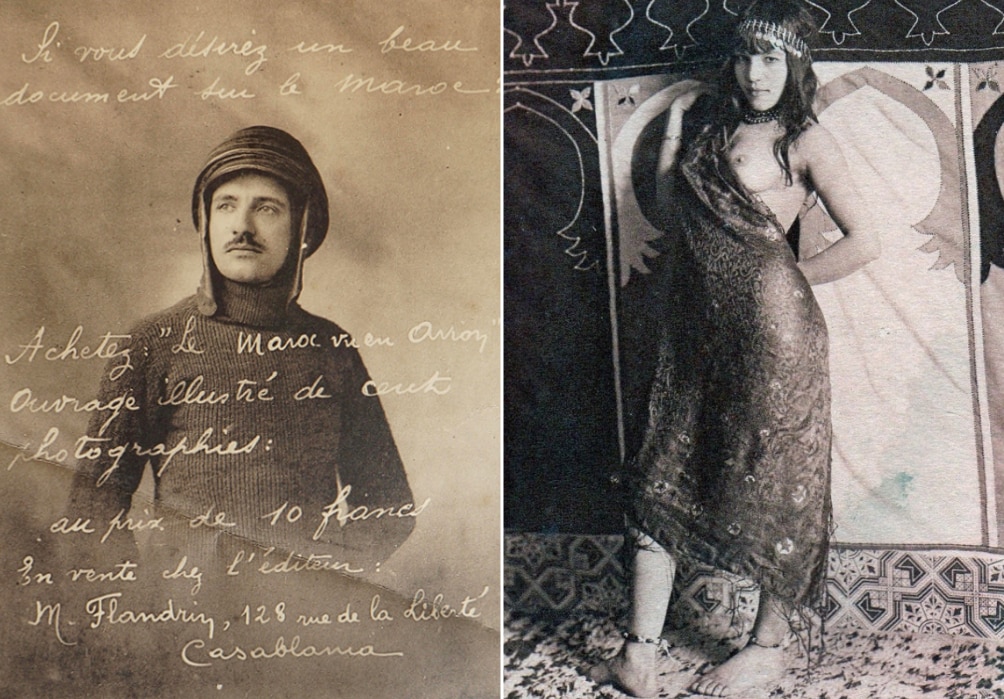 Si vous désirez un beau
document sur le Maroc?
Achetez: "Le Maroc vu en Avion"
Ouvrage illustré de cent
photographies:
au prix de 10 francs
En vente chez l'éditeur:
M. Flandrin, 128 rue de la Liberté
Casablanca